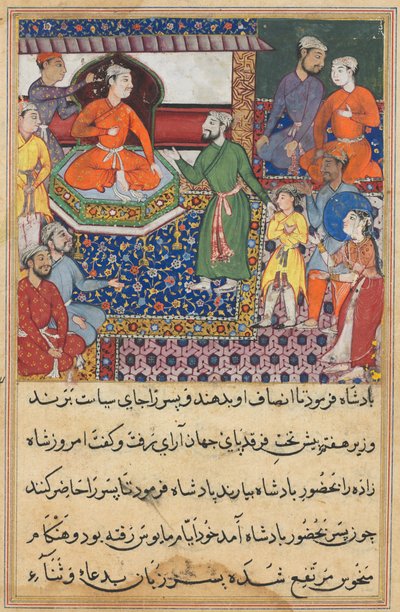 بادشاه فرمود تا انصاف او بدهند و پسر را جای سیاست برند
وزیر هفتم پیش تخت فرقد پای جهان آرای رفت و گفت امروز شاه
زاده را بحضور بادشاه بیارند بادشاه فرمود تا پسر را حاضر کنند
چون پسر بحضور بادشاه آمد خود ایام مایوس رفته بود و هنکام
منحوس مرتفع شده پسر زبان بدعا و ثنآء